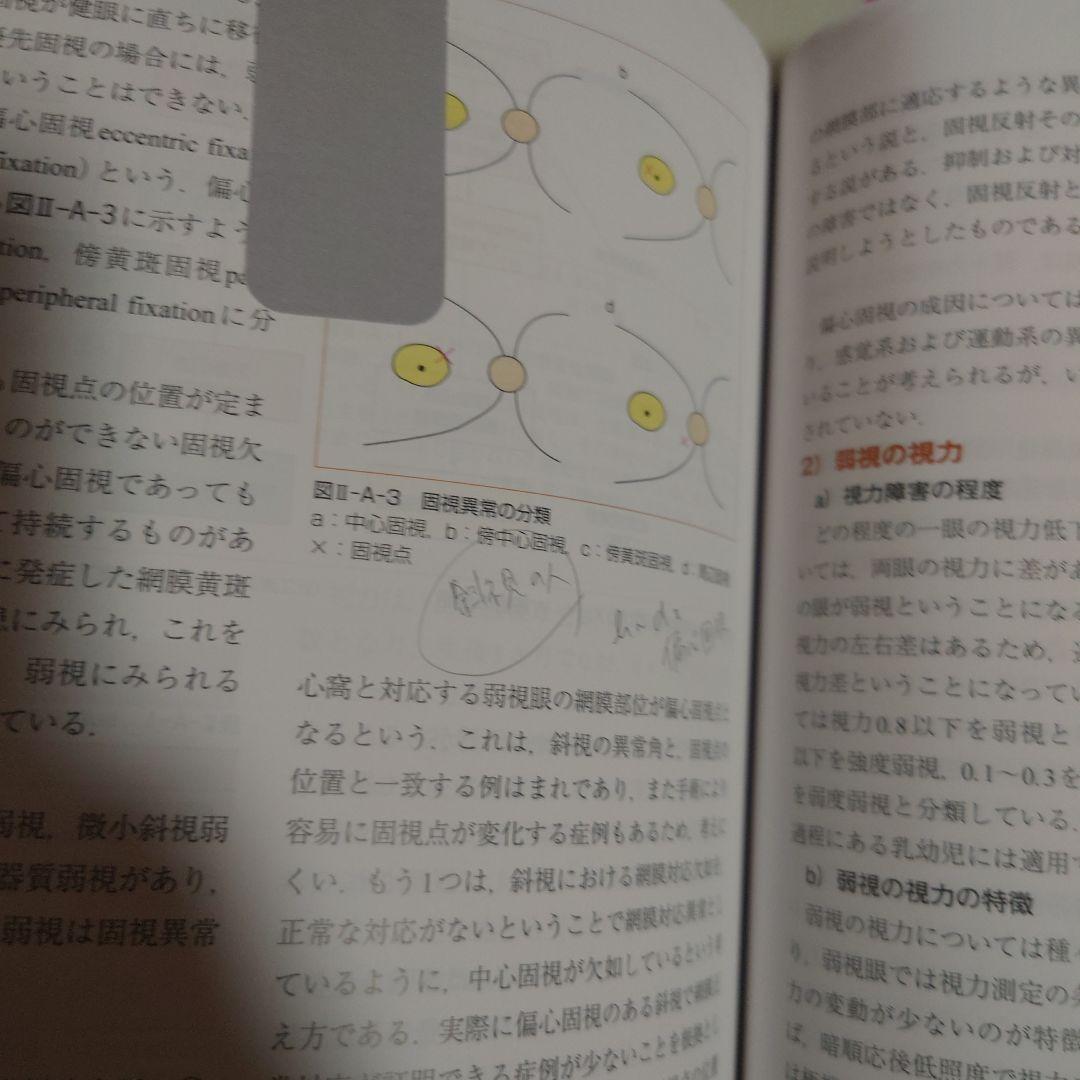 視が健眼に直ちに移
先固視の場合には,
いうことはできない.
偏心固視eccentric fixa
fixation)という. 偏心
図Ⅱ-A-3に示すよう
tion, 傍黄斑固視
peripheral fixationに分
固視点の位置が定ま
のができない固視欠
偏心固視であっても
て持続するものがあ
に発症した網膜黄斑
にみられ, これを
弱視にみられる
ている.
弱視, 微小斜視弱
器質弱視があり,
弱視は固視異常
b
d
図Ⅱ-A-3 固視異常の分類
a:中心固視, b:傍中心固視, c:傍黄斑固視, d:
×:固視点
心窩と対応する弱視眼の網膜部位が偏心固視点と
なるという. これは, 斜視の異常角と, 固視点の
位置と一致する例はまれであり, また手術により
容易に固視点が変化する症例もあるため, 考えに
くい. もう1つは, 斜視における網膜対応欠如
正常な対応がないということで網膜対応異常と
ているように, 中心固視が欠如しているという
え方である. 実際に偏心固視のある斜視で
できる症例が少ないことを
の網膜部に適応するような異
るという説と, 固視反射その
する説がある. 抑制および対
の障害ではなく, 固視反射と
説明しようとしたものである
偏心固視の成因については
り, 感覚系および運動系の異
いることが考えられるが, い
されていない.
2) 弱視の視力
a) 視力障害の程度
どの程度の一眼の視力低下
いては, 両眼の視力に差があ
の眼が弱視ということになる
視力の左右差はあるため,
視力差ということになってい
ては視力0.8以下を弱視と
以下を強度弱視, 0.1〜0.3を
を弱度弱視と分類している.
過程にある乳幼児には適用
b) 弱視の視力の特徴
弱視の視力については種
り, 弱視眼では視力測定の
力の変動が少ないのが特徴
ば, 暗順応後低照度で視